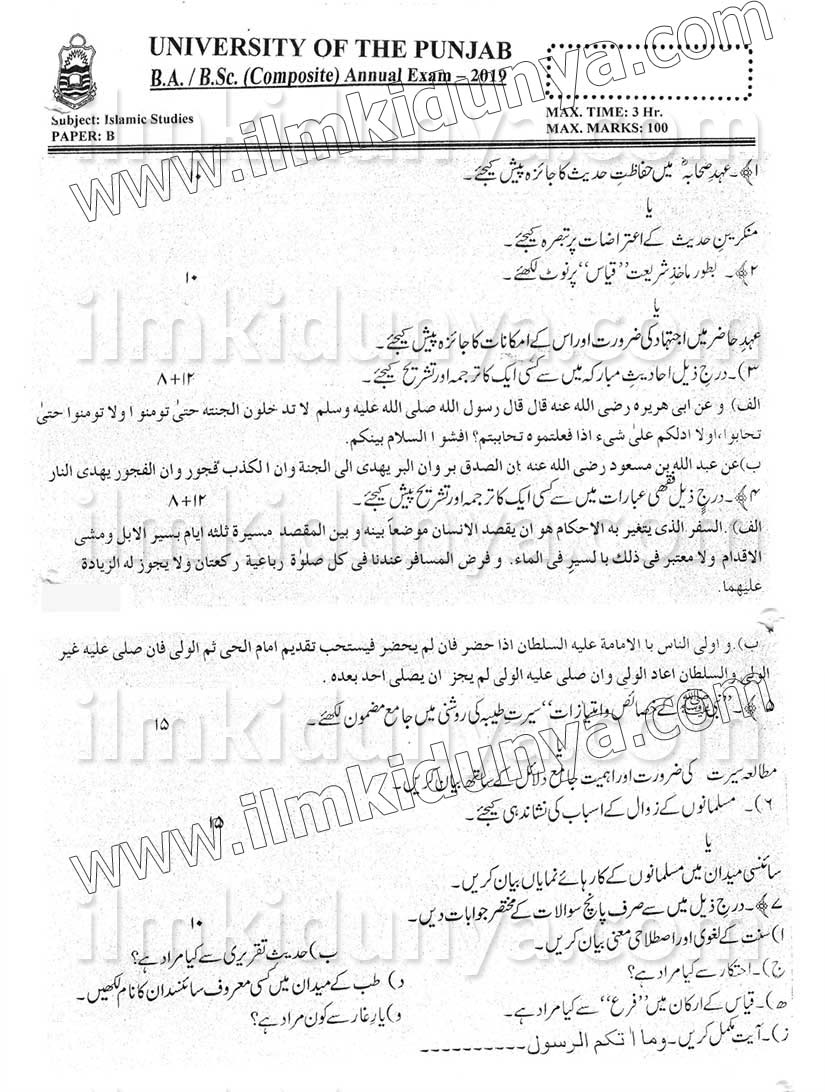 UNIVERSITY OF THE PUNJAB
B.A. / B.Sc. (Composite) Annual Exam – 2019
Subject: Islamic Studies
PAPER: B
MAX. TIME: 3 Hr.
MAX. MARKS: 100
۱﴾۔ عہدِ صحابہؓ میں حفاظتِ حدیث کا جائزہ پیش کیجئے۔ ۱۰
یا
منکرینِ حدیث کے اعتراضات پر تبصرہ کیجئے۔
۲﴾۔ بطور ماخذِ شریعت ’’قیاس‘‘ پر نوٹ لکھئے۔ ۱۰
یا
عہدِ حاضر میں اجتہاد کی ضرورت اور اس کے امکانات کا جائزہ پیش کیجئے۔
۳)۔ درج ذیل احادیثِ مبارکہ میں سے کسی ایک کا ترجمہ اور تشریح کیجئے۔ ۱۲+۸
الف) و عن ابی ھریرہ رضی الله عنه قال قال رسول الله صلی الله علیه وسلم لا تد خلون الجنته حتیٰ تومنو ا ولا تومنوا حتیٰ
تحابوا،اولا ادلکم علیٰ شیء اذا فعلتموه تحاببتم؟ افشو ا السلام بینکم.
ب)عن عبد الله بن مسعود رضی الله عنه ان الصدق بر وان البر یهدی الی الجنة وان ا لکذب فجور وان الفجور یهدی النار
۴﴾۔ درج ذیل فقھی عبارات میں سے کسی ایک کا ترجمہ اور تشریح پیش کیجئے۔ ۱۲+۸
الف). السفر الذی یتغیر به الاحکام هو ان یقصد الانسان موضعاً بینه و بین المقصد مسیرة ثلثه ایام بسیر الابل ومشی
الاقدام ولا معتبر فی ذلك با لسیر فی الماء. و فرض المسافر عندنا فی کل صلوٰة رباعیة رکعتان ولا یجوز له الزیادة
علیهما.
ب).و اولی الناس با الامامة علیه السلطان اذا حضر فان لم یحضر فیستحب تقدیم امام الحی ثم الولی فان صلی علیه غیر
الولی والسلطان اعاد الولی وان صلی علیه الولی لم یجز ان یصلی احد بعده .
۵﴾۔ ’’نبی ﷺ کے خصائص و امتیازات‘‘ سیرتِ طیبہ کی روشنی میں جامع مضمون لکھئے۔ ۱۵
یا
مطالعہ سیرت کی ضرورت اور اہمیت جامع دلائل کے ساتھ بیان کریں۔
۶)۔ مسلمانوں کے زوال کے اسباب کی نشاندہی کیجئے۔ ۱۵
یا
سائنسی میدان میں مسلمانوں کے کارہائے نمایاں بیان کریں۔
۷﴾۔ درج ذیل میں سے صرف پانچ سوالات کے مختصر جوابات دیں۔ ۱۰
ا) سنت کے لغوی اور اصطلاحی معنی بیان کریں۔ ب) حدیث تقریری سے کیا مراد ہے؟
ج)۔ احتکار سے کیا مراد ہے؟ د) طب کے میدان میں کسی معروف سائنسدان کا نام لکھیں۔
ھ)۔ قیاس کے ارکان میں ’’فرع‘‘ سے کیا مراد ہے۔ و) یارِ غار سے کون مراد ہے؟
ز)۔ آیت مکمل کریں۔ وما اٰ تکم الرسول ـ ـ ـ ـ ـ ـ ـ ـ ـ ـ
www.ilmkidunya.com
ilmkidunya.com
ilmkidunya.com
www.ilmkidunya.com
ilmkidunya.com